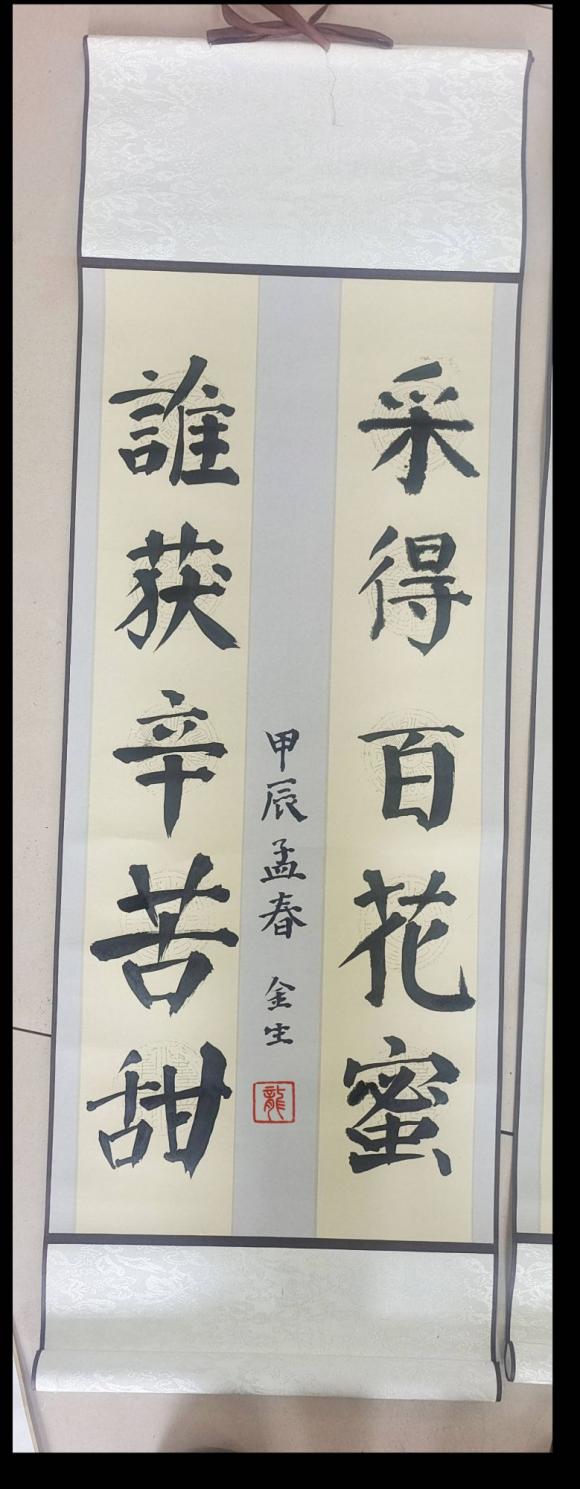 采得百花蜜
誰获辛苦甜
甲辰孟春 金生
龍